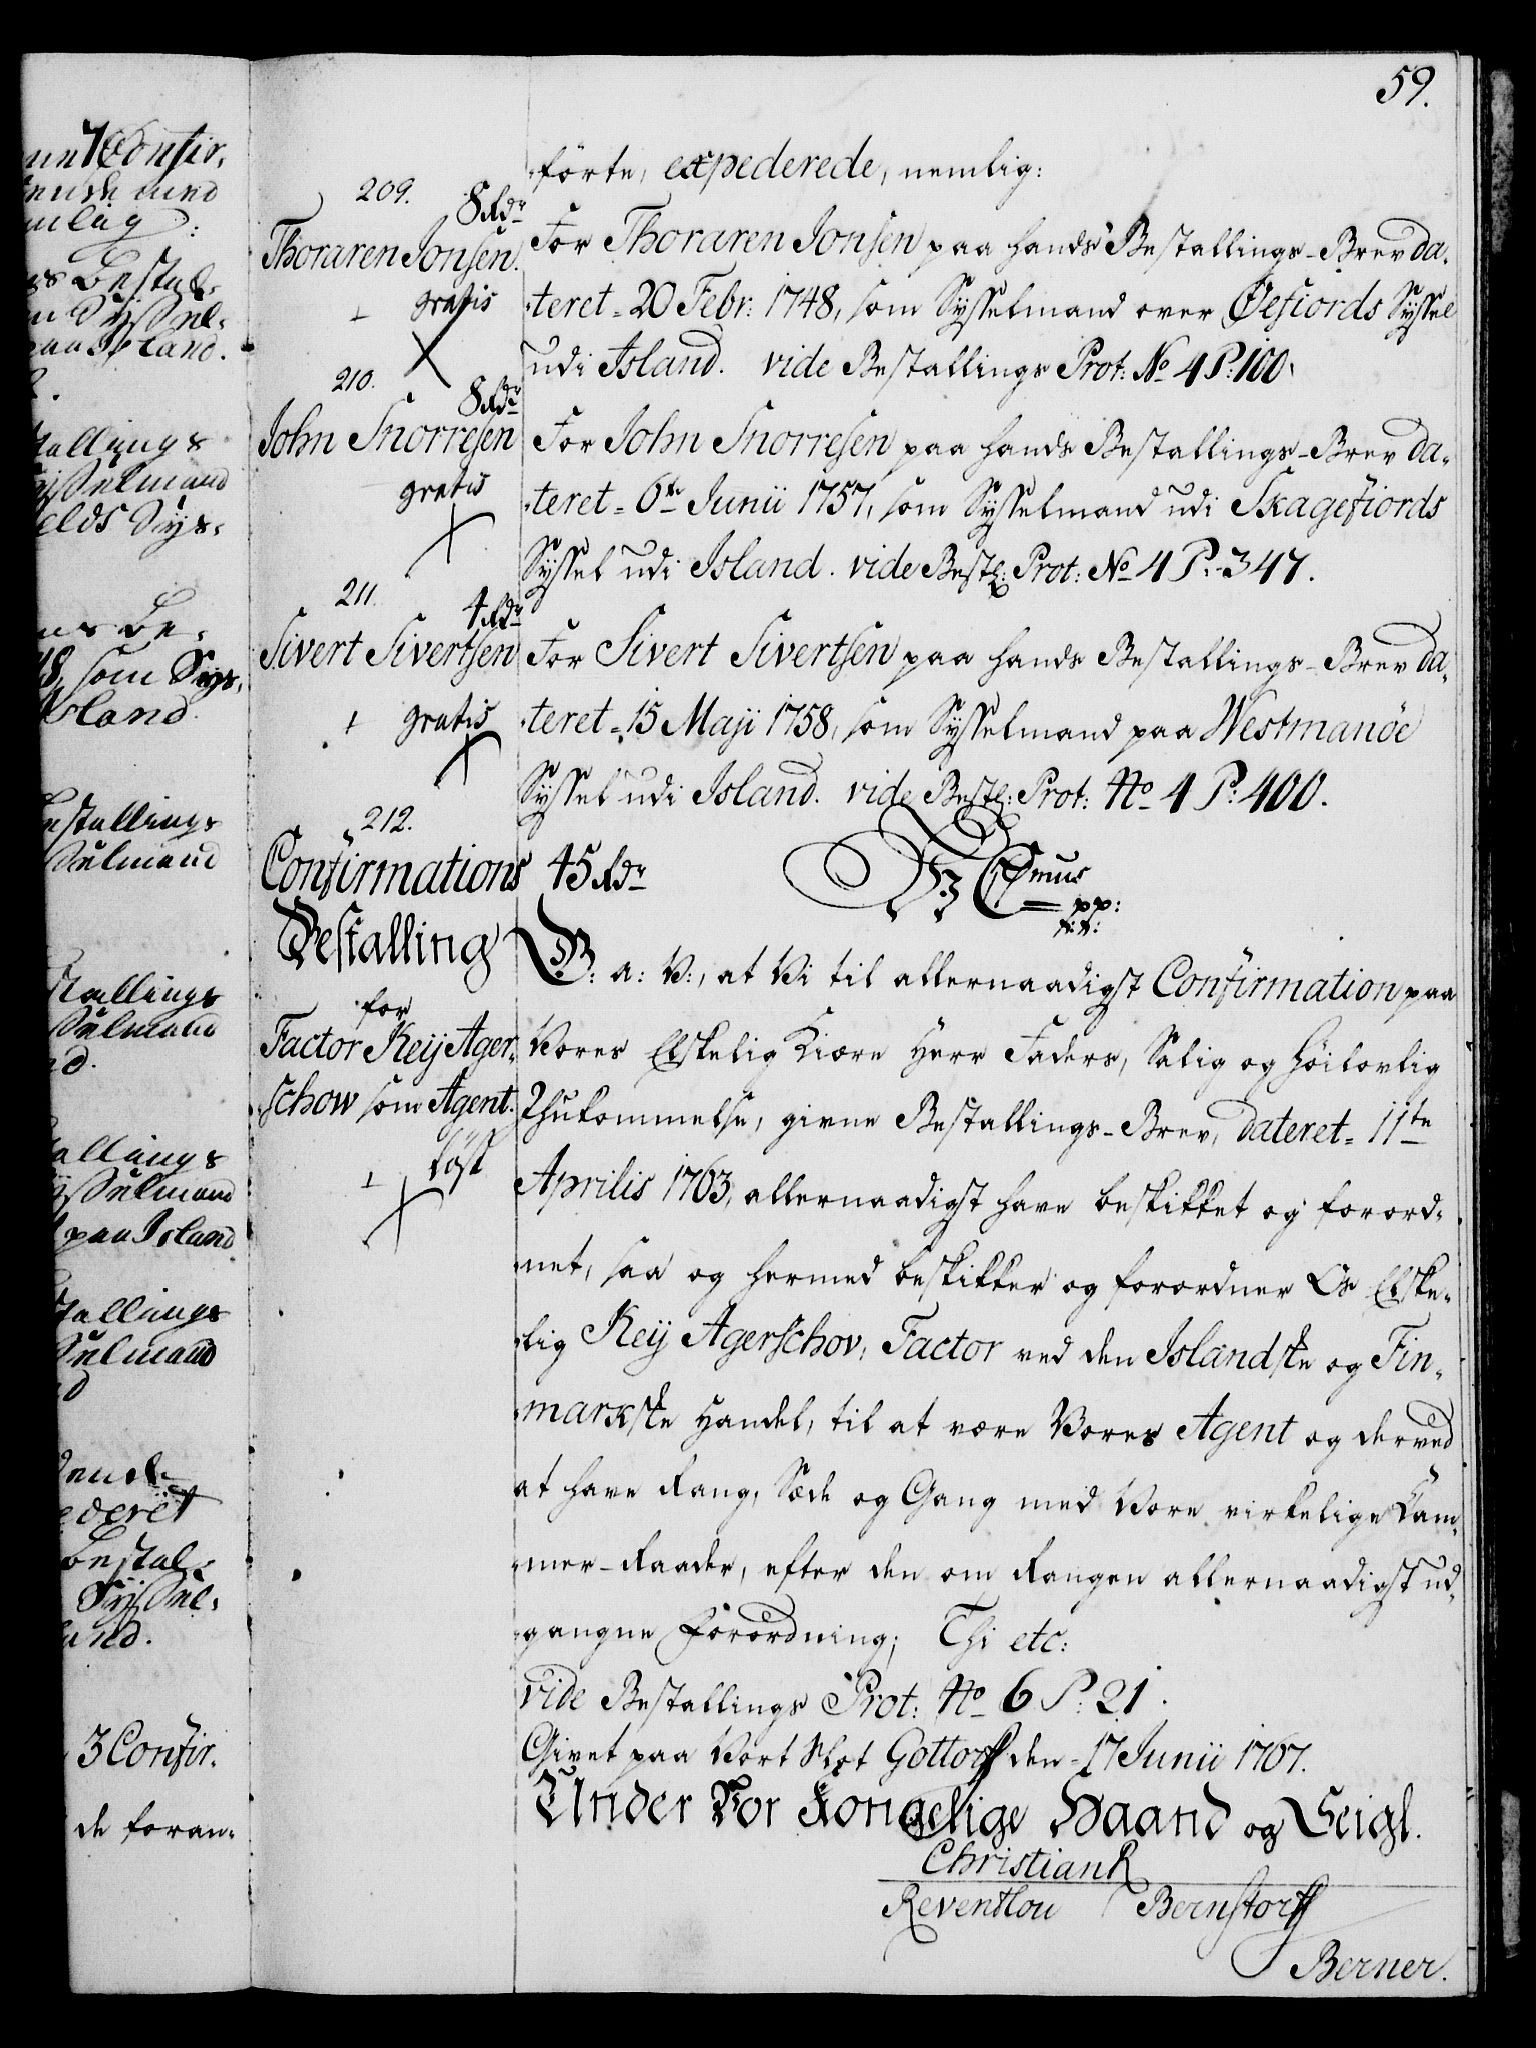 59.
förte, expederede, nemlig:
209.
8 Rdr
Thoraren Jonsen.
gratis
For Thoraren Jonsen paa hands Bestallings-Brev da-
teret 20 Febr: 1748, som Sysselmand over Øefiords Syssel
udi Island. vide Bestallings Prot: No 4 P: 100.
210.
8 Rdr
John Snorresen
gratis
For John Snorresen paa hands Bestallings-Brev da-
teret 6te Junii 1757, som Sysselmand udi Skagefiords
Syssel udi Island. vide Bestl: Prot: No 4 P: 347.
211.
4 Rdr
Sivert Sivertsen
gratis
For Sivert Sivertsen paa hands Bestallings-Brev da-
teret 15 Maji 1758, som Sysselmand paa Westmanöe
Syssel udi Island. vide Bestl: Prot: No 4 P: 400.
212.
Confirmations
Bestalling
for
Factor Keij Ager-
schow som Agent.
löst
45 Rdr
Wii C 7mus
pp:
G: a: V:, at Vi til allernaadigst Confirmation paa
Vores Elskelig Kiære Herr Faders, Salig og Höilovlig
Ihukommelse, givne Bestallings-Brev, dateret 11te
Aprilis 1763, allernaadigst have beskikket og forord-
net, saa og hermed beskikker og forordner Os Elske-
lig Keij Agerschov, Factor ved den Islandske og Fin-
markske Handel, til at være Vores Agent og derved
at have Rang, Sæde og Gang med Vore virkelige Cam-
mer-Raader, efter den om Rangen allernaadigst ud-
gangne Forordning; Thi etc:
vide Bestallings Prot: No 6 P: 21.
Givet paa Vort Slot Gottorff den 17 Junii 1767.
Under Vor Kongelige Haand og Seigl.
Christian R
Reventlou Bernstorff
Berner.